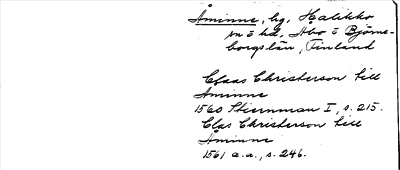 Åminne, bg, Halikko
sn o hd, Åbo o Björne-
borgs län, Finland
Claas Christerson till
Åminne
1560 Stiernman I, s. 215.
Clas Christerson till
Åminne
1561 a.a., s. 246.